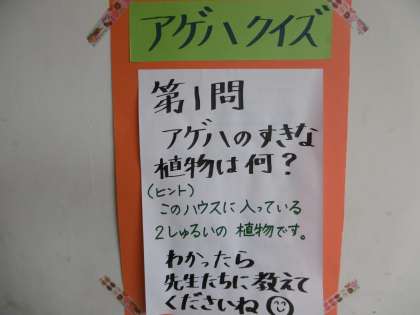 アゲハクイズ
第1問
アゲハのすきな
植物は何？
(ヒント)
このハウスに入っている
2しゅるいの植物です。
わかったら
先生たちに教えて
くださいね